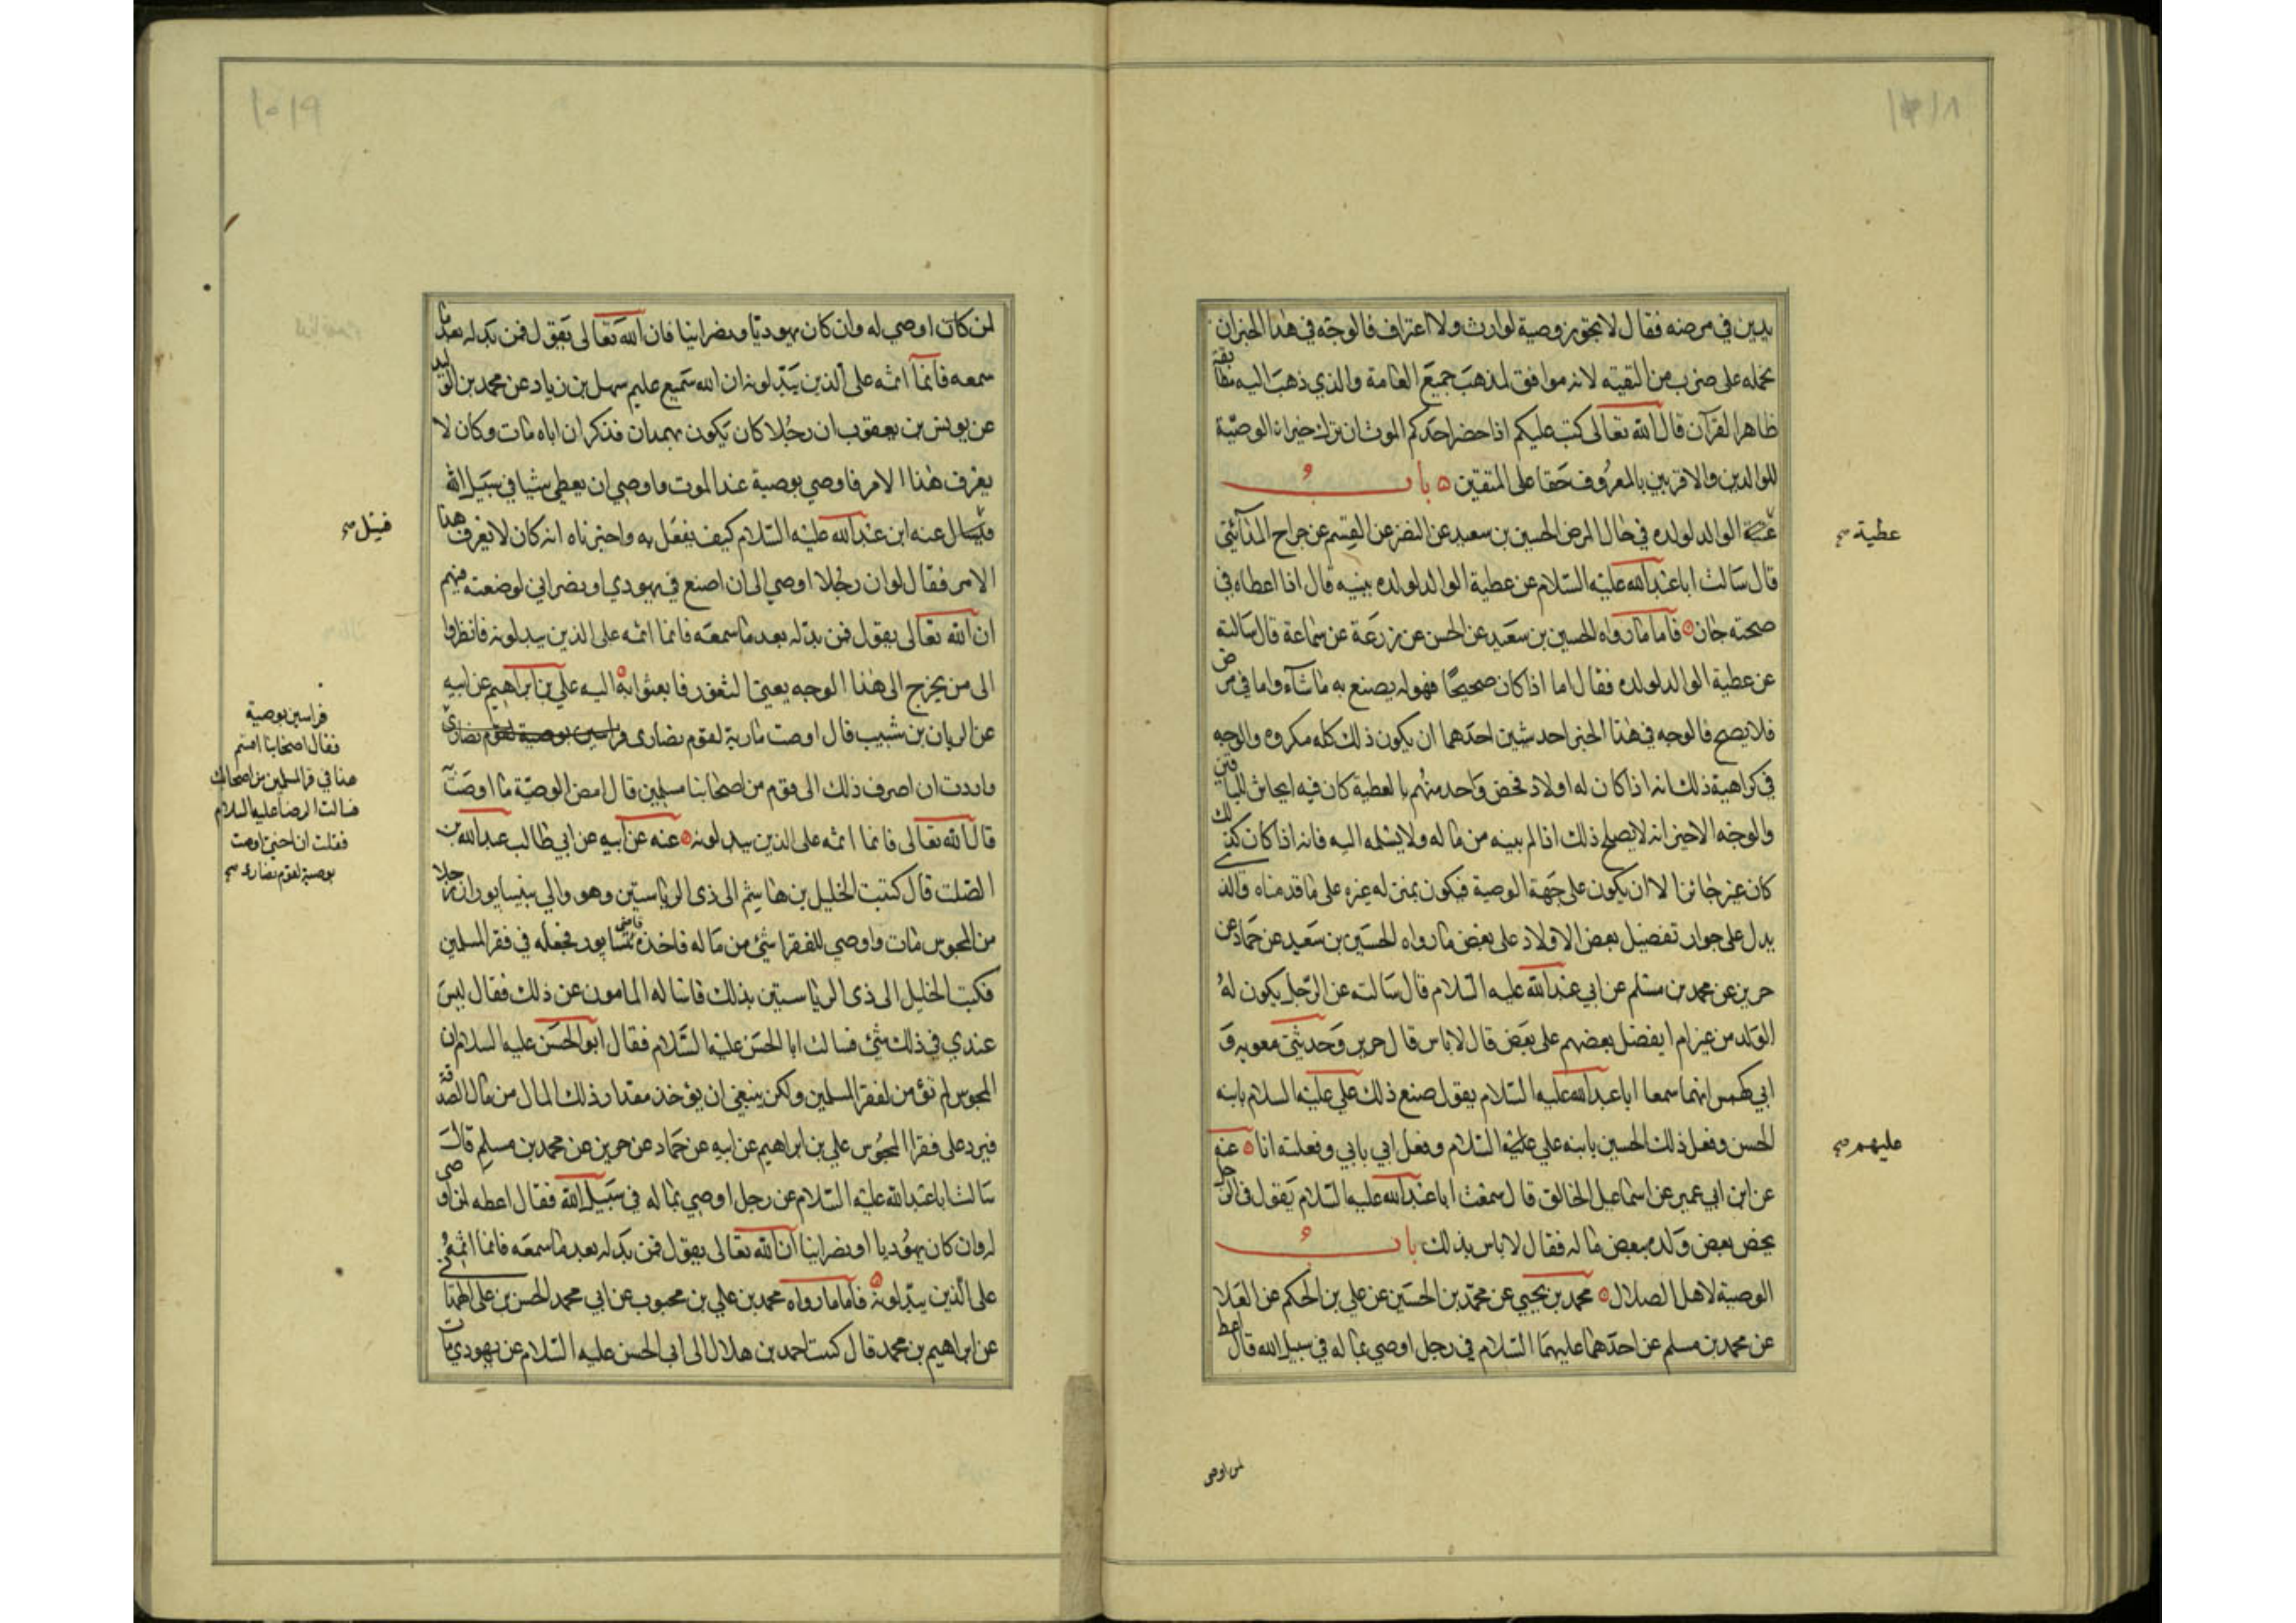 ١٠١٨
بدين في مرضه فقال لا يجوز وصية لوارث ولا اعتراف فالوجه في هذا الخبر ان
نحمله على ضرب من التقية لانه موافق لمذهب جميع العامة والذي ذهب اليه مطابقة
ظاهر القرآن قال الله تعالى كتب عليكم اذا حضر احدكم الموت ان ترك خيرا ن الوصية
للوالدين والاقربين بالمعروف حقا على المتقين ه باب
عطية صح
الوالد لولده في حال المرض الحسين بن سعيد عن النضر عن القسم عن جراح المدآئني
قال سالت ابا عبد الله عليه السلام عن عطية الوالد لولده ببينه قال اذا اعطاه في
صحته جاز ه فاما ما رواه الحسين بن سعيد عن الحسن عن زرعة عن سماعة قال سالته
عن عطية الوالد لولده فقال اما اذا كان صحيحا فهو له يصنع به ما شاء واما في مرض
فلا يصح فالوجه في هذا الخبر احد شيين احدهما ان يكون ذلك كله مكروه والوجه
في كراهية ذلك انه اذا كان له اولاد فخص واحد منهم بالعطية كان فيه ايحاش للباقين
والوجه الاخير انه لا يصلح ذلك اذا لم يبينه من ماله ولا يسلمه اليه فانه اذا كان كذلك
كان غير جائز الا ان يكون على جهة الوصية فيكون بمنزله غيره على ما قدمناه والذي
يدل على جواز تفضيل بعض الاولاد على بعض ما رواه الحسين بن سعيد عن حماد عن
حريز عن محمد بن مسلم عن ابي عبد الله عليه السلام قال سالته عن الرجل يكون له
الولد من غير ام ايفضل بعضهم على بعض قال لا باس قال حريز وحدثني معويه و
ابي كهمس انهما سمعا ابا عبد الله عليه السلام يقول صنع ذلك علي عليه السلام بابنه
الحسن وفعل ذلك الحسين بابنه علي عليه السلام وفعل ابي بابي وفعلته انا ه عنه
عليهم صح
عن ابن ابي عمير عن اسماعيل الخالق قال سمعت ابا عبد الله عليه السلام يقول في الرجل
يخص بعض ولده ببعض ماله فقال لا باس بذلك باب
الوصية لاهل الضلال ه محمد بن يحيي عن محمد بن الحسين عن علي بن الحكم عن العلا
عن محمد بن مسلم عن احدهما عليهما السلام في رجل اوصي بماله في سبيل الله قال اعط
لمن اوصي
١٠١٩
لمن كان اوصي له وان كان يهوديا ونصرانيا فان الله تعالى يقول فمن بدله بعد ما
سمعه فانما اثمه على الذين يبدلونه ان الله سميع عليم سهل بن زياد عن محمد بن الوليد
عن يونس بن يعقوب ان رجلا كان يكون بهمدان فذكر ان اباه مات وكان لا
يعرف هذا الامر فاوصي بوصية عند الموت واوصي ان يعطي شيا في سبيل الله
فسئل عنه ابن عبد الله عليه السلام كيف يفعل به واخبرناه انه كان لا يعرف هذا
فسئل صح
الامر فقال لو ان رجلا اوصي الى ان اضع في يهودي او نصراني لوضعته فيهم
ان الله تعالى يقول فمن بدله بعد ما سمعه فانما اثمه على الذين يبدلونه فانظروا
الى من يخرج الى هذا الوجه يعني الثغور فابعثوا به اليه ه علي بن ابراهيم عن ابيه
عن الريان بن شبيب قال اوصت ماردة لقوم نصارى فراسين بوصية لقوم نصارى
فراسين بوصية
فقال اصحابنا اقسم
هذا في فقرا المسلمين من اصحابك
فسالت الرضا عليه السلام
فقلت ان اختي اوصت
بوصية لقوم نصارى صح
واردت ان اصرف ذلك الى قوم من اصحابنا مسلمين قال امض الوصية ما اوصت
قال الله تعالى فانما اثمه على الذين يبدلونه ه عنه عن ابيه عن ابي طالب عبد الله بن
الصلت قال كتبت الخليل بن هاشم الى ذى الرياستين وهو والي بنيسابور ان رجلا
من المجوس مات واوصي للفقرا شئ من ماله فاخذه قاضي نيسابور فجعله في فقرا المسلمين
فكتب الخليل الى ذى الرياستين بذلك فاساله المامون عن ذلك فقال ليس
عندي في ذلك شئ فسالت ابا الحسن عليه السلام فقال ابو الحسن عليه السلام ان
المجوس لم توٰص لفقرا المسلمين ولكن ينبغي ان يؤخذ مقدار ذلك المال من مال الصدقة
فيرد على فقرا المجوس علي بن ابراهيم عن ابيه عن حماد عن حريز عن محمد بن مسلم قال
سالت ابا عبد الله عليه السلام عن رجل اوصي بماله في سبيل الله فقال اعطه لمن اوصى
له وان كان يهوديا او نصرانيا ان الله تعالى يقول فمن بدله بعد ما سمعه فانما اثمه
على الذين يبدلونه ه فاما ما رواه محمد بن علي بن محبوب عن ابي محمد الحسن بن علي الهمداني
عن ابراهيم بن محمد قال كتب احمد بن هلال الى ابي الحسن عليه السلام عن يهودي مات